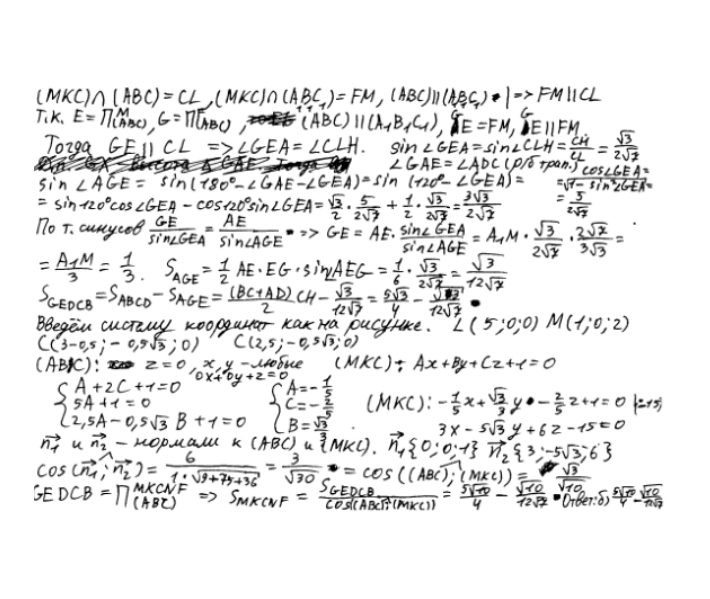 (MKC)∩(ABC) = CL, (MKC)∩(A₁B₁C₁) = FM, (ABC)||(A₁B₁C₁) |=> FM||CL
Т.к. E = П^M_(ABC), G = П^F_(ABC), (ABC)||(A₁B₁C₁), GE=FM, GE||FM
Тогда GE||CL => ∠GEA=∠CLH. sin∠GEA=sin∠CLH=CH/CL=√3/(2√7)
∠GAE=∠ADC (р/б трап.) cos∠GEA=
sin∠AGE= sin(180°-∠GAE-∠GEA)=sin(120°-∠GEA)= =√(1-sin²∠GEA)=
= sin120°cos∠GEA - cos120°sin∠GEA=√3/2 · 5/(2√7) + 1/2 · √3/(2√7)=3√3/(2√7) =5/(2√7)
По т. синусов GE/sin∠GEA = AE/sin∠AGE => GE = AE · sin∠GEA/sin∠AGE = A₁M · √3/(2√7) · 2√7/(3√3) =
= A₁M/3 = 1/3. S_AGE = 1/2 AE·EG·sin∠AEG = 1/6 · √3/(2√7) = √3/(12√7)
S_GEDCB = S_ABCD - S_AGE = (BC+AD)/2 CH - √3/(12√7) = 5√3/4 - √3/(12√7)
Введём систему координат как на рисунке. L(5;0;0) M(1;0;2)
C(3-0,5; -0,5√3; 0) C(2,5; -0,5√3; 0)
(ABC): z=0, x,y - любые (MKC): Ax+By+Cz+1=0
0x+0y+z=0
{A+2C+1=0 {A=-1/5
{5A+1=0 {C=-2/5 (MKC): -1/5x+√3/3y-2/5z+1=0 |·(-15)
{2,5A-0,5√3B+1=0 {B=√3/3. 3x-5√3y+6z-15=0
n₁ и n₂ - нормали к (ABC) и (MKC). n₁{0;0;1} n₂{3;-5√3;6}
cos(n₁;n₂) = 6/(1·√(9+75+36)) = 3/√30 = cos((ABC);(MKC)) = √3/√10
GEDCB = П^MKCNF_(ABC) => S_MKCNF = S_GEDCB/cos((ABC);(MKC)) = 5√10/4 - √10/(12√7) Ответ: б) 5√10/4 - √10/(12√7)